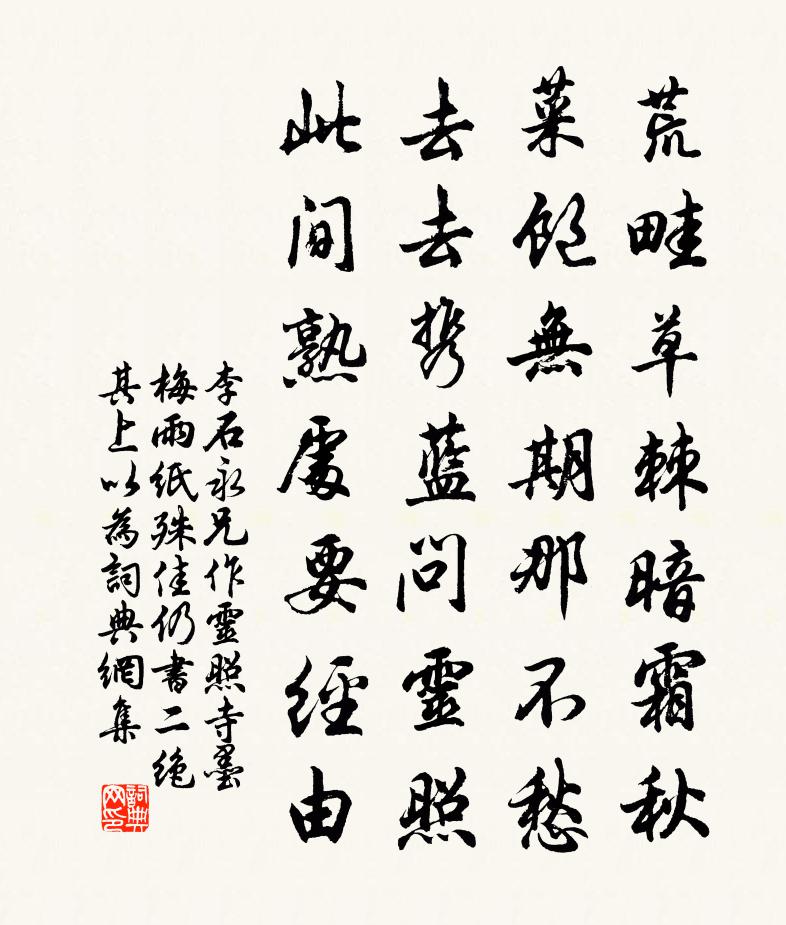 荒畦草棘暗霜秋
菜飽無期那不愁
去去携藍問靈照
此間熟處要經由
李石永兄作靈照寺墨
梅兩紙殊佳仍書二絶
其上以為詞典網集
詞典网印